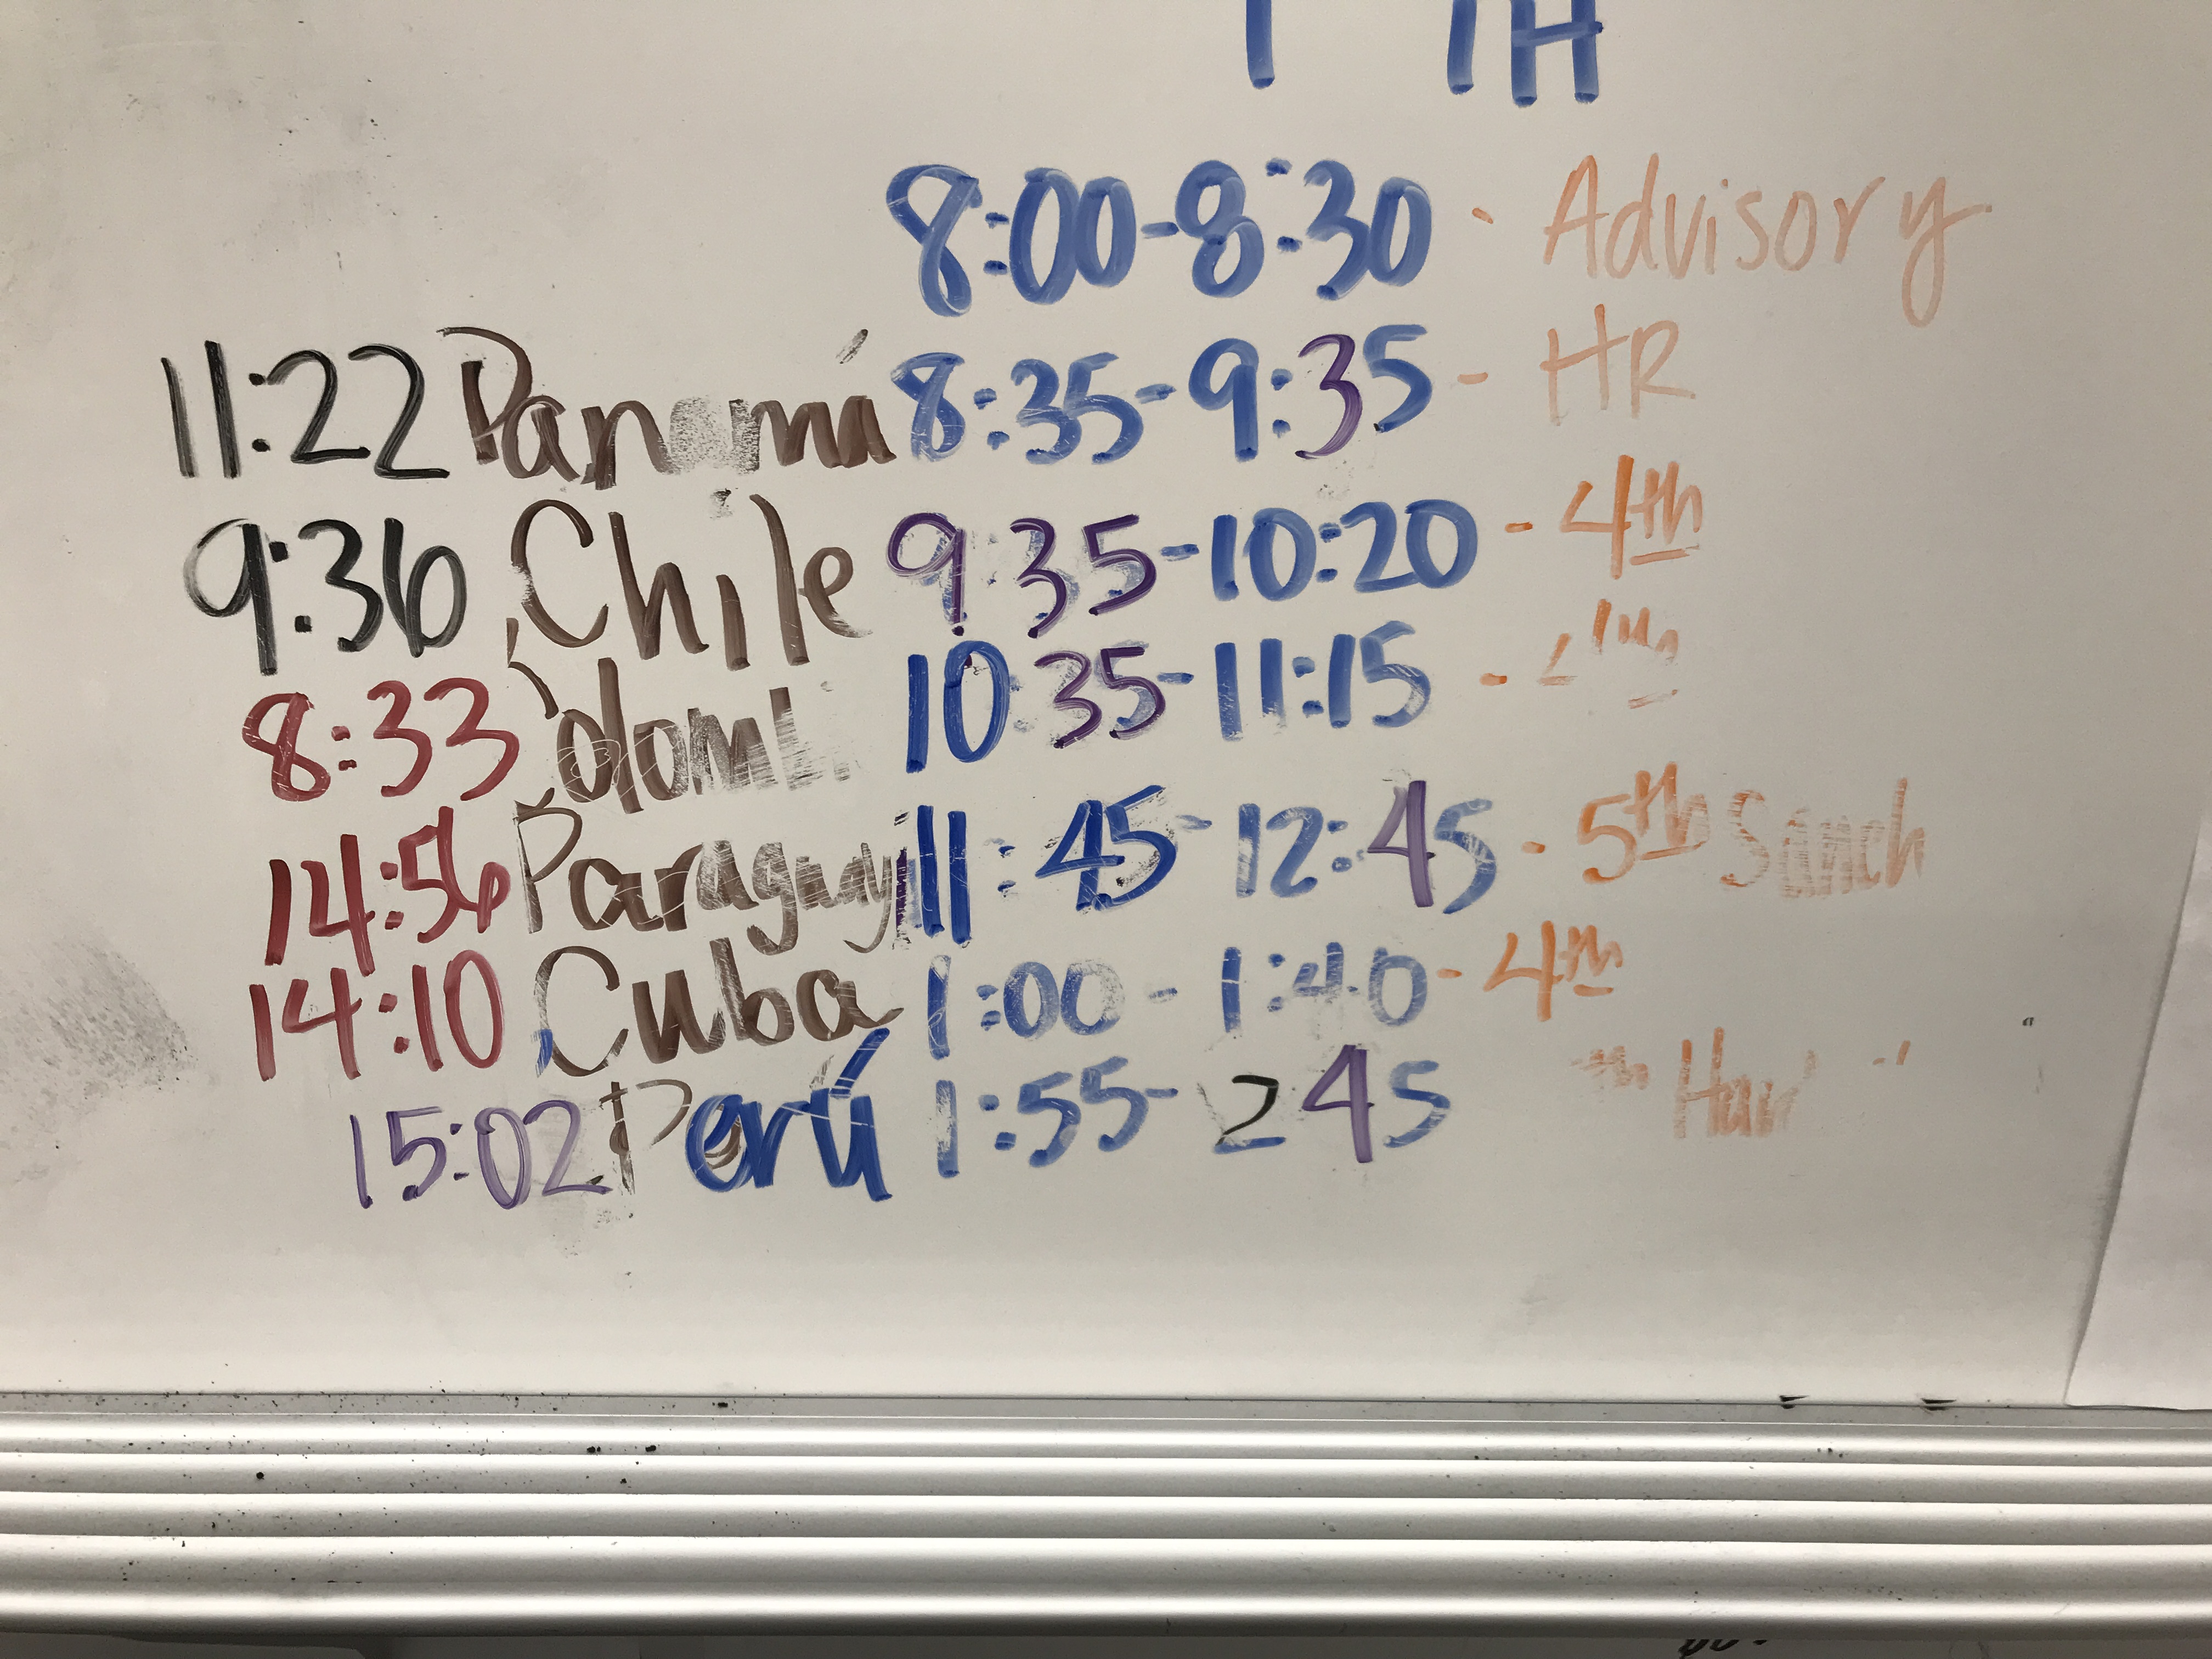 TH
8:00-8:30 - Advisory
11:22 Panamá 8:35-9:35 - HR
9:36 Chile 9:35-10:20 - 4th
8:33 10:35-11:15 -
14:56 Paraguay 11:45-12:45 - 5th
14:10 Cuba 1:00-1:40 - 4th
15:02 Perú 1:55-245